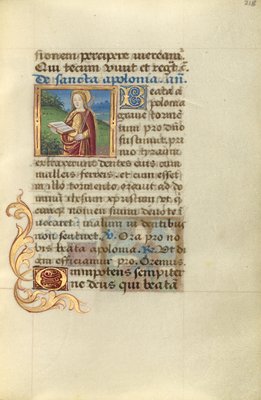 218
sionem percipere mereamur
Qui tecum vivit et
De sancta apolonia. an̄.
Beata a
polonia
grave tormē
tum pro dn̄o
sustinuit, pri
mo tyranni
extraxerunt dentes eius cum
malleis ferreis. et cum esset
in illo tormento. oravit ad do
minum ihesum xpristum ut q̄
cunq̄ nomen suum devote i
nvocaret: malum in dentibus
non sentiret. V. Ora pro no
bis beata apolonia. R. Ut di
gni efficiamur pro. Oremus.
Omnipotens sempiter
ne deus qui beatā